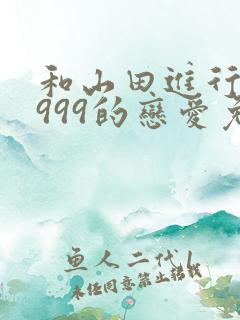 和山田進行
999的戀愛免
魚人二代/
未经同意禁止转载